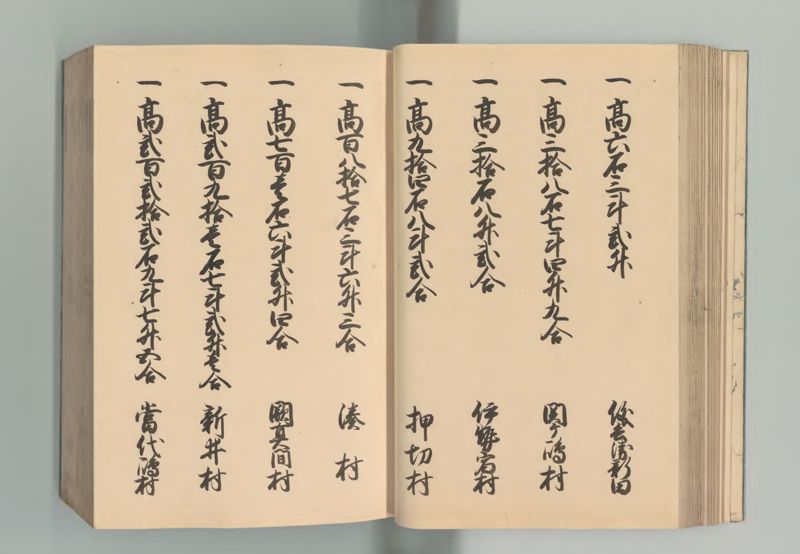 一 高六石三斗弐升 儀兵衛新田
一 高三拾八石七斗四升九合 関ケ嶋村
一 高三拾石八升弐合 伊勢宿村
一 高九拾四石八斗弐合 押切村
一 高百八拾七石三斗六升三合 湊村
一 高七百壱石六斗弐升四合 國真間村
一 高弐百九拾壱石七斗弐升壱合 新井村
一 高弐百弐拾弐石九斗七升五合 當代嶋村